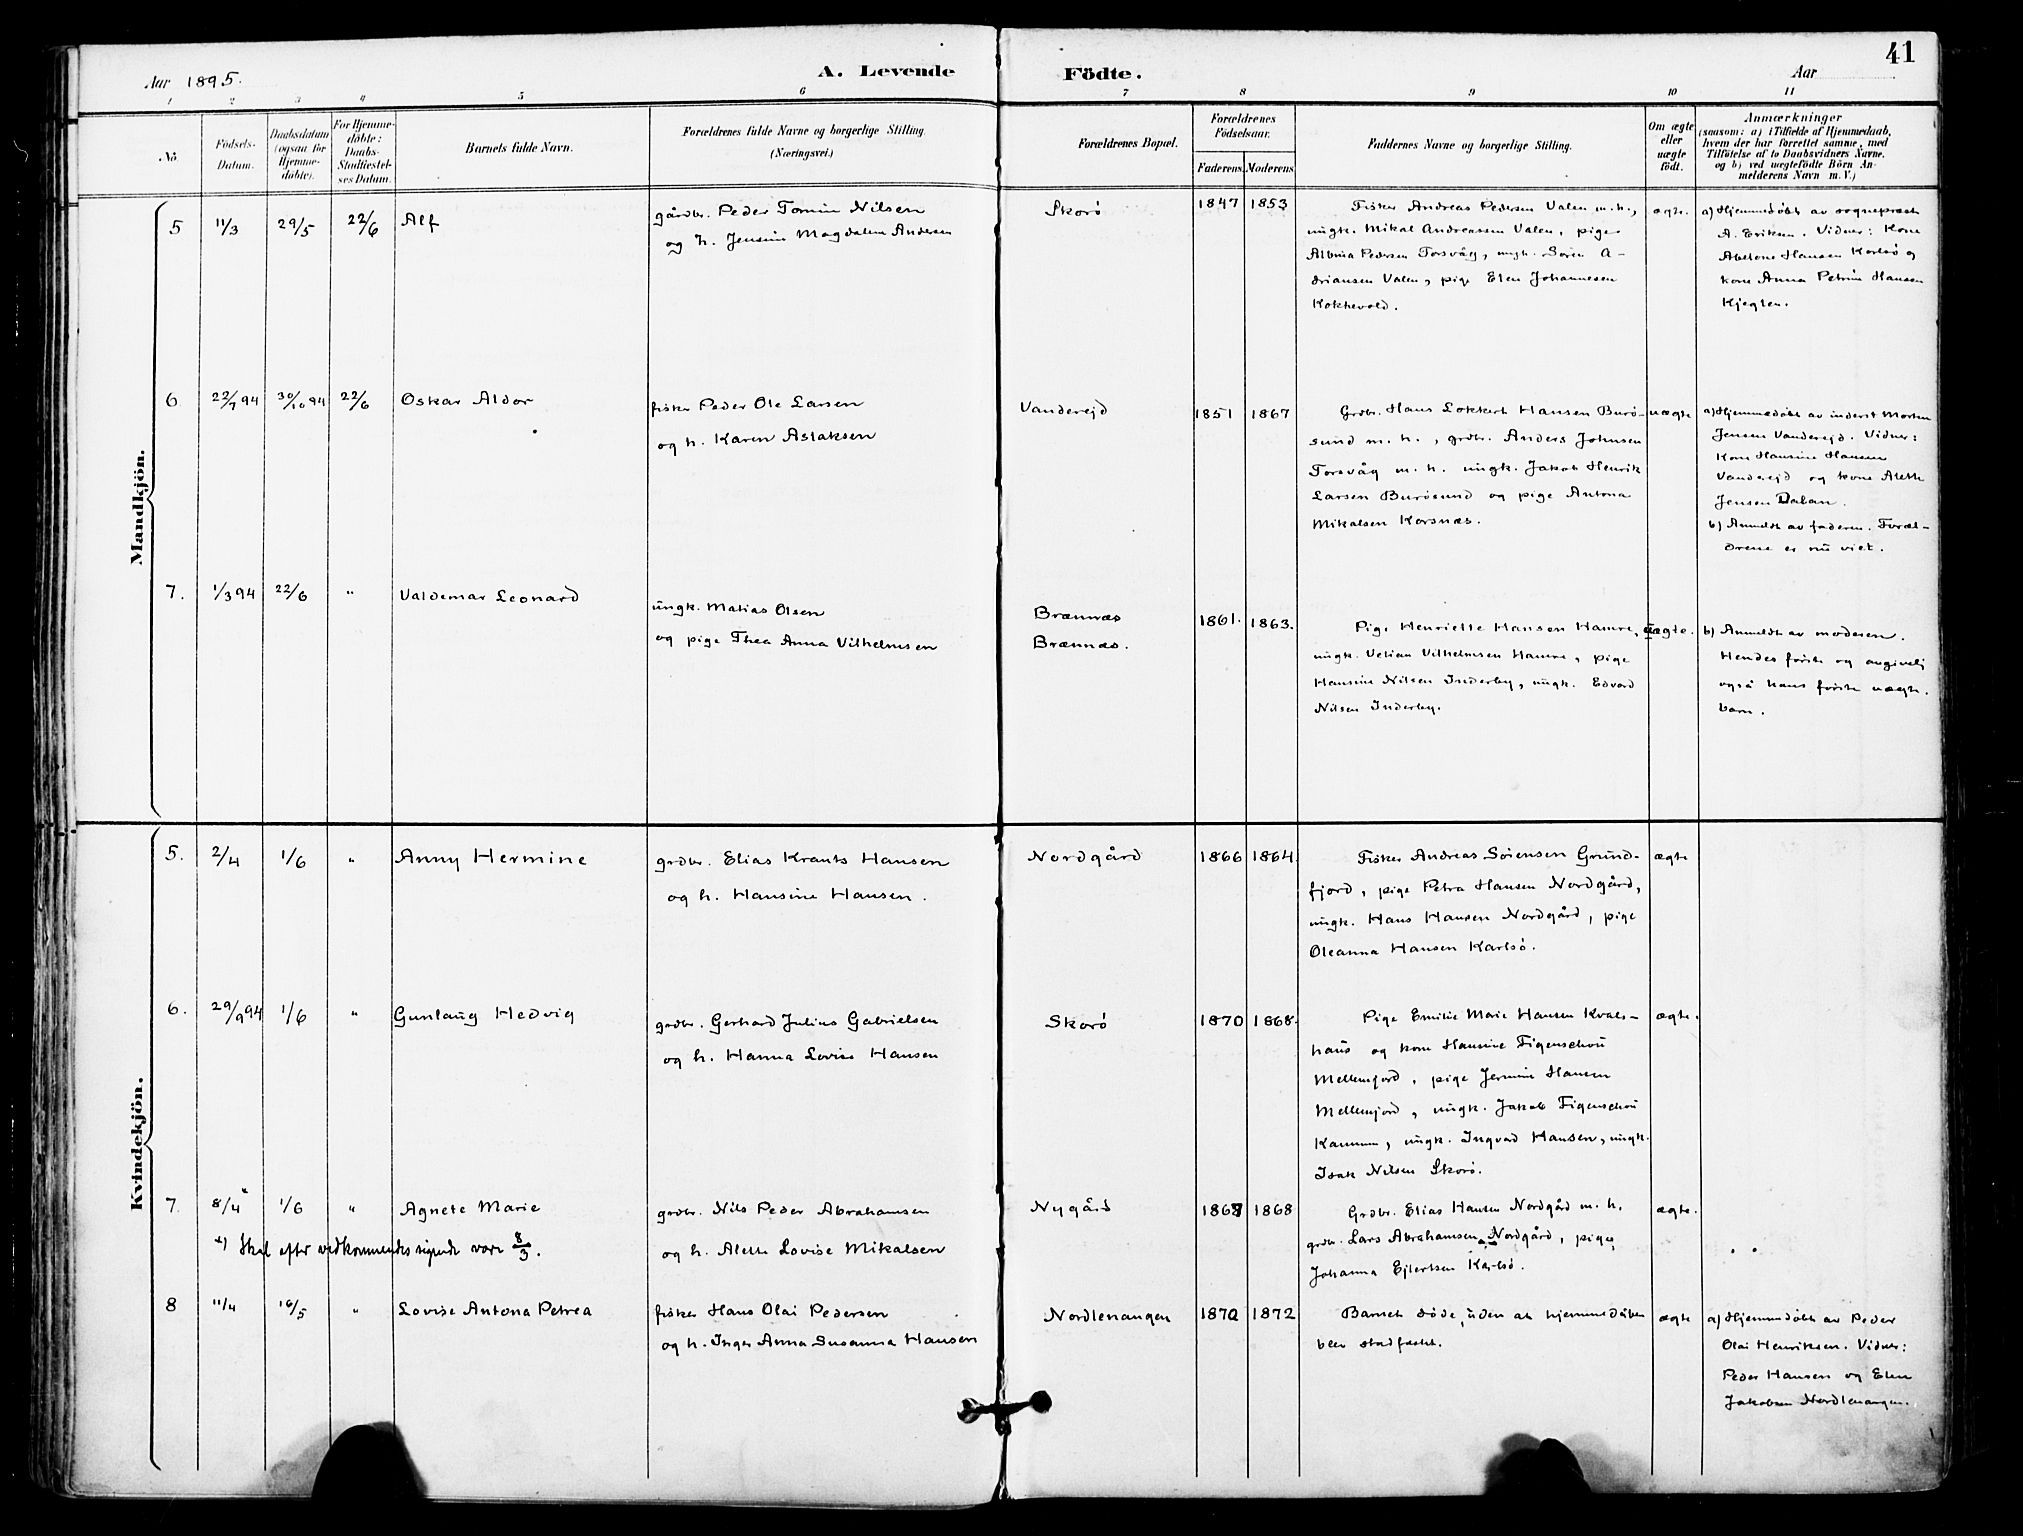 41
Aar 1895.
A. Levende Födte.
Aar
1 2 3 4 5 6 7 8 9 10 11
No.
Födsels-
Datum.
Daabsdatum
(ogsaa for
Hjemme-
döbte).
For Hjemme-
döbte:
Daabs-
Stadfæstel-
ses Datum.
Barnets fulde Navn.
Forældrenes fulde Navne og borgerlige Stilling.
(Næringsvei.)
Forældrenes Bopæl.
Forældrenes
Födselsaar.
Faderens. Moderens.
Faddernes Navne og borgerlige Stilling.
Om ægte
eller
uægte
födt.
Anmærkninger
(saasom: a) i Tilfælde af Hjemmedaab,
hvem der har forrettet samme, med
Tilföielse af to Daabsvidners Navne.
og b) ved uegtefödte Börn An-
melderens Navn m. V.)
Mandkjön.
5 11/3 29/5 22/6 Alf
gårdbr. Peder Tomin Nilsen
og h. Jensine Magdalena Andersen
Skorö
1847 1853
Fisker Andreas Pedersen Valen m.h.,
ungk. Mikal Andreassen Valen, pige
Albina Pedersen Torsvåg, ungk. Sören A-
driansen Valen, pige Elen Johannesen
Kokkevold.
ægte.
a) Hjemmedöbt av sognepræst
A. Eriksen. Vidner: Kone
Abelone Hansen Karlsö og
kone Anna Petrine Hansen
Kjeglen.
6 22/7 94 30/10 94 22/6 Oskar Aldor
fisker Peder Ole Larsen
og h. Karen Aslaksen
Vanderejd
1851 1867
Grdbr. Hans Lokkert Hansen Burö-
sund m. h., grdbr. Anders Johnsen
Torsvåg m. h. ungk. Jakob Henrik
Larsen Burösund og pige Antona
Mikalsen Korsnæs.
uægte
a) Hjemmedöbt av inderst Morten
Jensen Vanderejd. Vidner:
Kone Hansine Hansen
Vanderejd og kone Alette
Jensen Dalan.
b) Anmeldt av faderen. Foræl-
drene er nu viet.
7. 1/3 94 22/6 " Valdemar Leonard
ungk. Matias Olsen
og pige Thea Anna Vilhelmsen
Brænnæs
Brænnæs.
1861. 1863.
Pige Henriette Hansen Hamre,
ungk. Vetian Vilhelmsen Hamre, pige
Hansine Nilsen Inderby, ungk. Edvard
Nilsen Inderby.
uægte.
b) Anmeldt av moderen.
Hendes förste og angivelj
også hans förste uægte
barn.
Kvindekjön.
5. 2/4 1/6 " Anny Hermine
grdbr. Elias Krants Hansen
og h. Hansine Hansen.
Nordgård
1866 1864.
Fisker Andreas Sörensen Grund-
fjord, pige Petra Hansen Nordgård,
ungk. Hans Hansen Nordgård, pige
Oleanna Hansen Karlsö.
ægte
6. 29/9 94 1/6 " Gunlaug Hedvig
grdbr. Gerhard Julius Gabrielsen
og h. Hanna Lovise Hansen
Skorö
1870 1868.
Pige Emilie Marie Hansen Kvals-
haus og kone Hansine Figenschou
Mellemfjord, pige Jermine Hansen
Mellemfjord, ungk. Jakob Figenschou
ungk. Ingvard Hansen, ungk.
Isak Nilsen Skorö.
ægte.
7. 8/4 x 1/6 " Agnete Marie
x) Skal efter vedkommendes sigende være 8/3.
grdbr. Nils Peder Abrahamsen
og h. Alette Lovise Mikalsen
Nygård
1867 1868
Grdbr. Elias Hansen Nordgård m. h.
grdbr. Lars Abrahamsen Nordgård, pige
Johanna Ejlertsen Karlsö.
ægte.
8 11/4 16/5 " Lovise Antona Petrea
fisker Hans Olai Pedersen
og h. Inger Anna Susanna Hansen
Nordlenangen
1870 1872
Barnet döde, uden at hjemmedåben
blev stadfæstet.
ægte
a) Hjemmedöbt av Peder
Olai Henriksen. Vidner:
Peder Hansen og Elen
Jakobsen Nordlenangen.